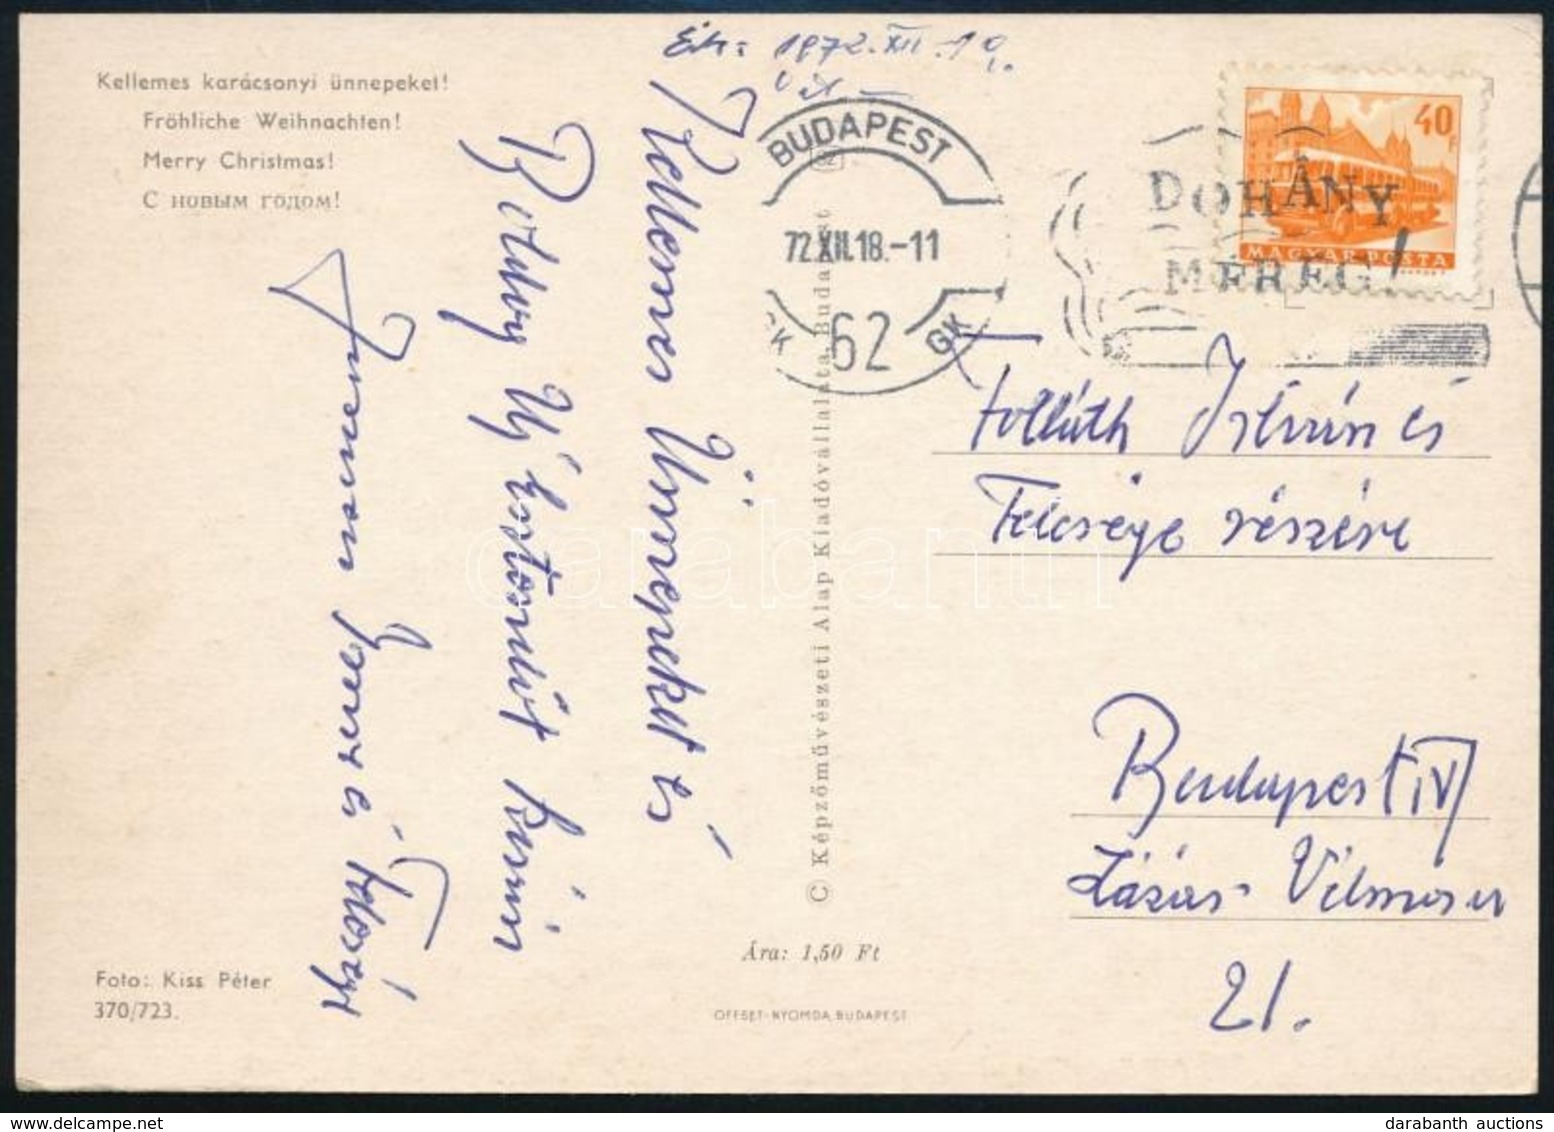 Kellemes karácsonyi ünnepeket!
Fröhliche Weihnachten!
Merry Christmas!
С новым годом!
Érk: 1972.XII.19.
BUDAPEST
62
72.XII.18.-11
GK 62 GK
DOHÁNY
MÉREG!
40 F
MAGYAR POSTA
Kellemes Ünnepeket és
Boldog Új Esztendőt kíván
Jenő és felesége
István és
Felesége részére
Budapest IV
Lázár Vilmos u
21.
© Képzőművészeti Alap Kiadóvállalata, Budapest
Ára: 1,50 Ft
OFFSET-NYOMDA, BUDAPEST
Foto: Kiss Péter
370/723.
darabanth
darabanth auctions